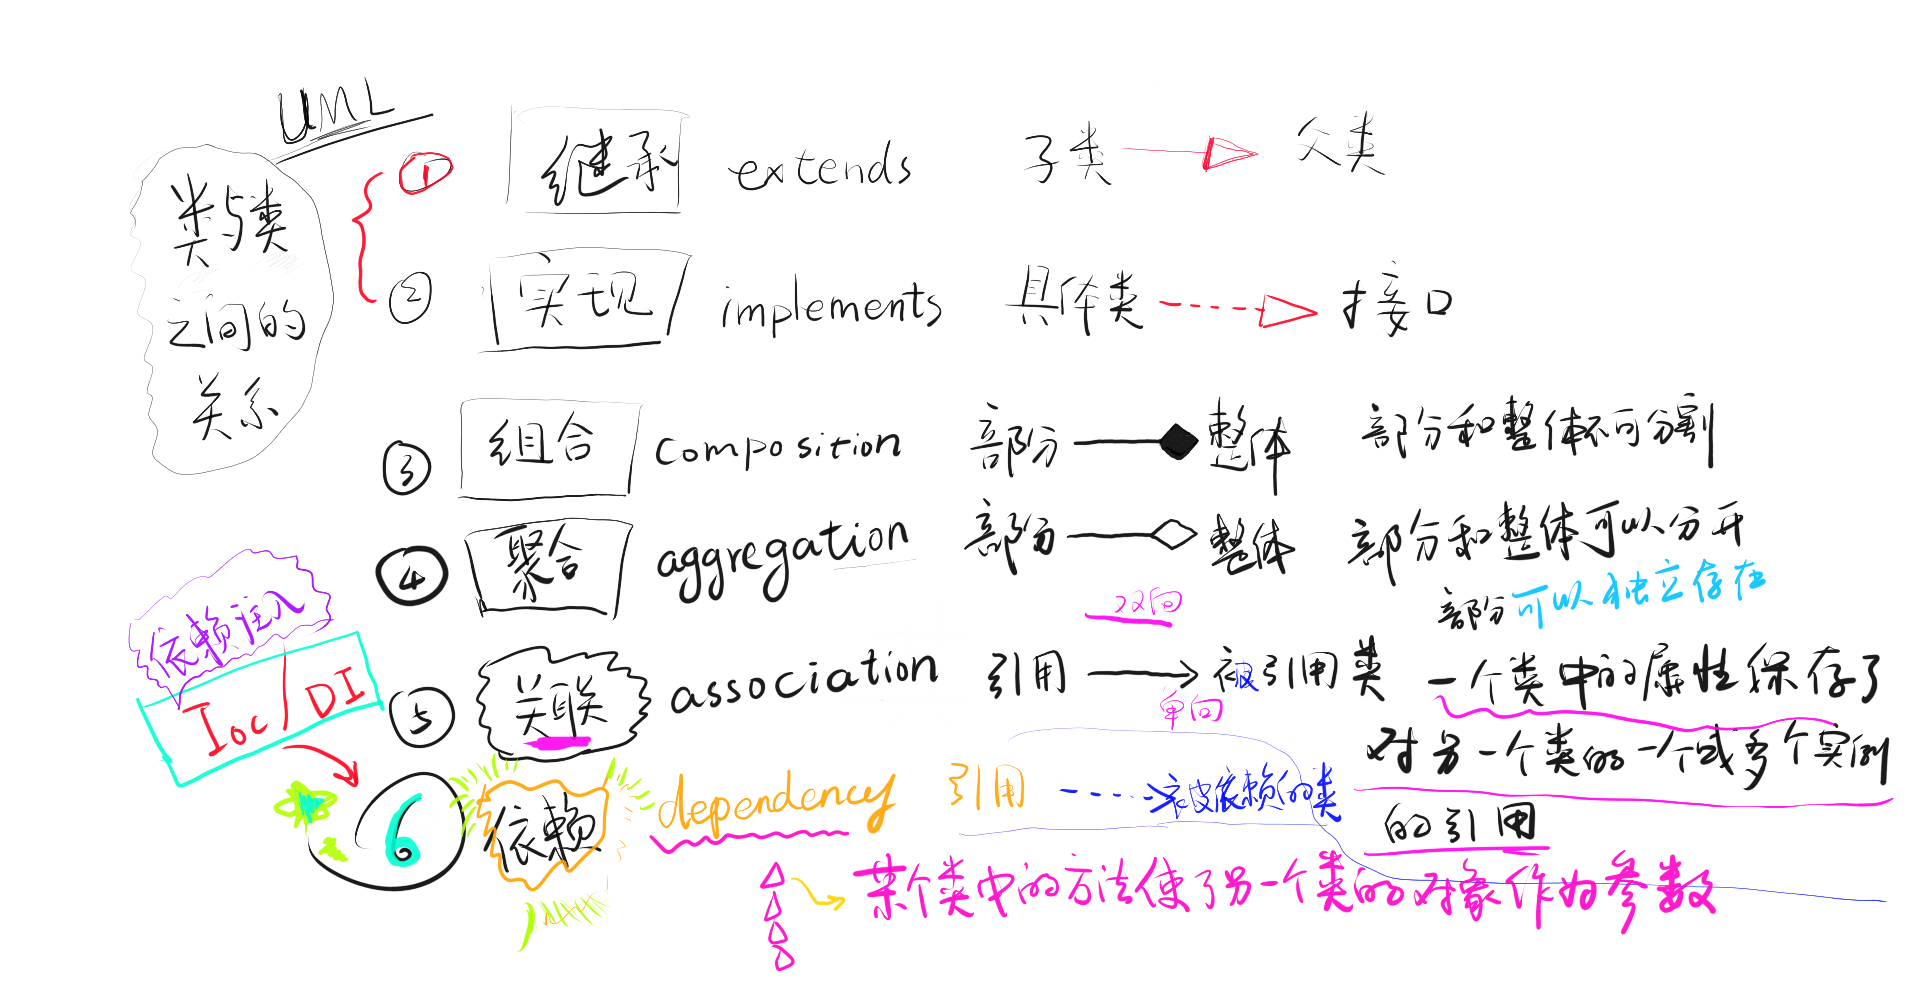 UML
类与类
之间的
关系
① 继承 extends 子类 父类
② 实现 implements 具体类 接口
③ 组合 composition 部分 整体 部分和整体不可分割
④ 聚合 aggregation 部分 整体 部分和整体可以分开
部分可以独立存在
双向
⑤ 关联 association 引用 被引用类 一个类中的属性保存了
单向
对另一个类的一个或多个实例
的引用
依赖注入
Ioc/DI
6 依赖 dependency 引用 被依赖的类
某个类中的方法使了另一个类的对象作为参数